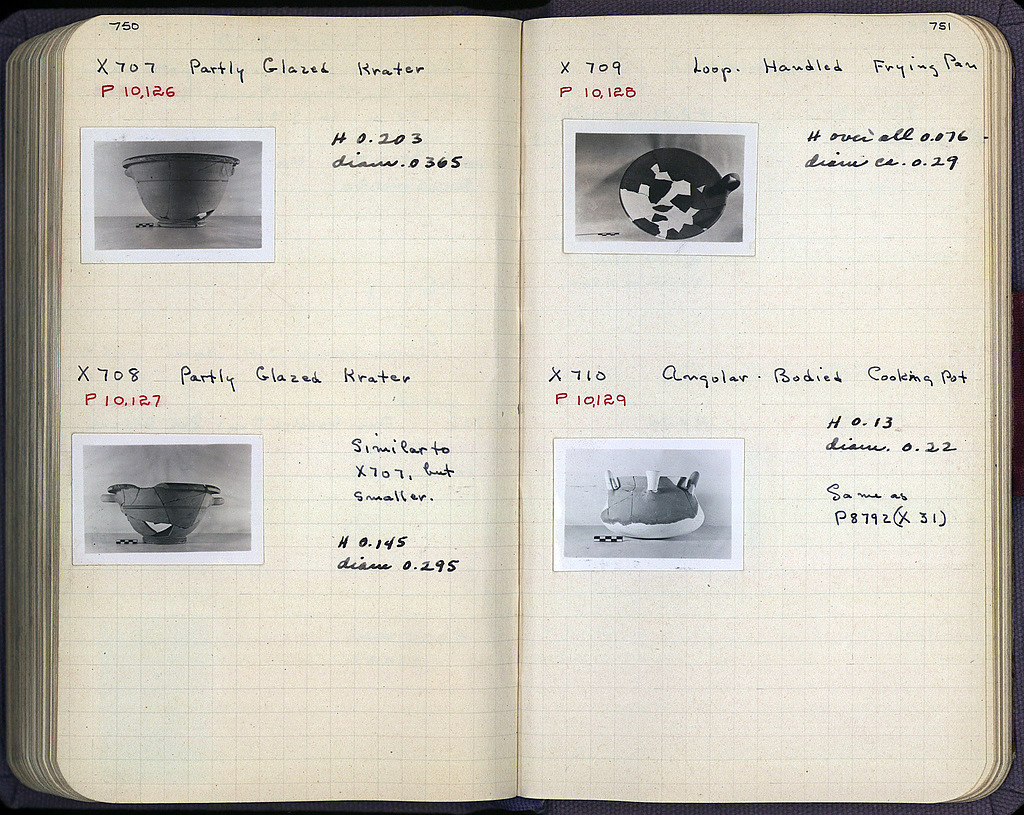 750
X 707 Partly Glazed Krater
P 10,126
H 0.203
diam. 0365
X 708 Partly Glazed Krater
P 10,127
Similar to
X707, but
Smaller.
H 0.145
diam 0.295
751
X 709 Loop-Handled Frying Pan
P 10,128
H over all 0.076
diam ca. 0.29
X 710 Angular-Bodied Cooking Pot
P 10,129
H 0.13
diam. 0.22
Same as
P8792(X 31)